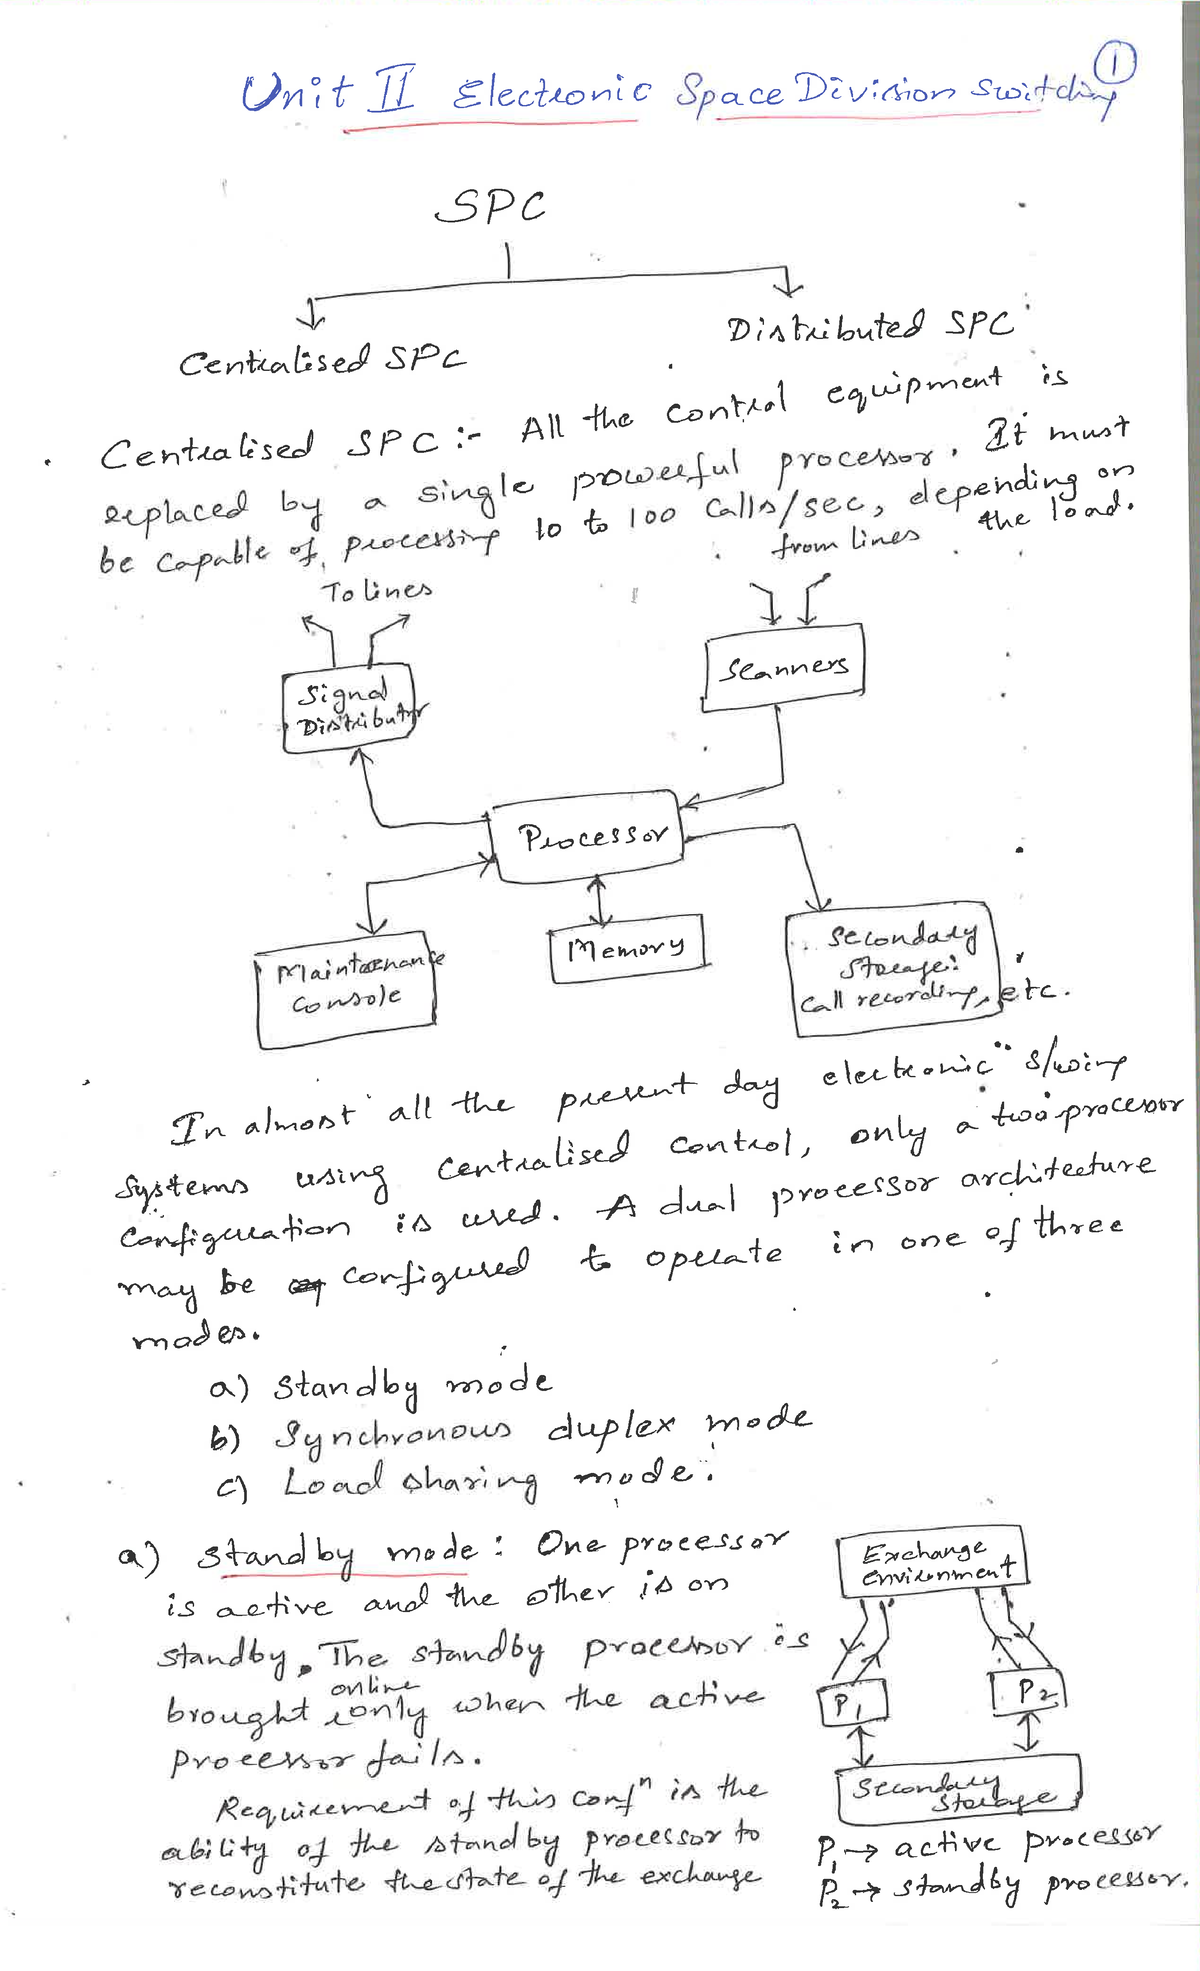 1
Unit II Electronic Space Division Switching
SPC
Centralised SPC
Distributed SPC
Centralised SPC :- All the control equipment is
replaced by a single powerful processor. It must
be capable of processing 10 to 100 calls/sec, depending on
the load.
To lines
from lines
Signal
Distributor
Scanners
Processor
Maintenance
Console
Memory
Secondary
Storage:
Call recording, etc.
In almost all the present day electronic s/wing
systems using centralised control, only a two-processor
configuration is used. A dual processor architecture
may be configured to operate in one of three
modes.
a) Standby mode
b) Synchronous duplex mode
c) Load sharing mode.
a) Standby mode : One processor
is active and the other is on
standby. The standby processor is
brought online only when the active
processor fails.
Requirement of this confⁿ is the
ability of the standby processor to
reconstitute the state of the exchange
Exchange
environment
P1
P2
Secondary
Storage
P1 → active processor
P2 → standby processor.